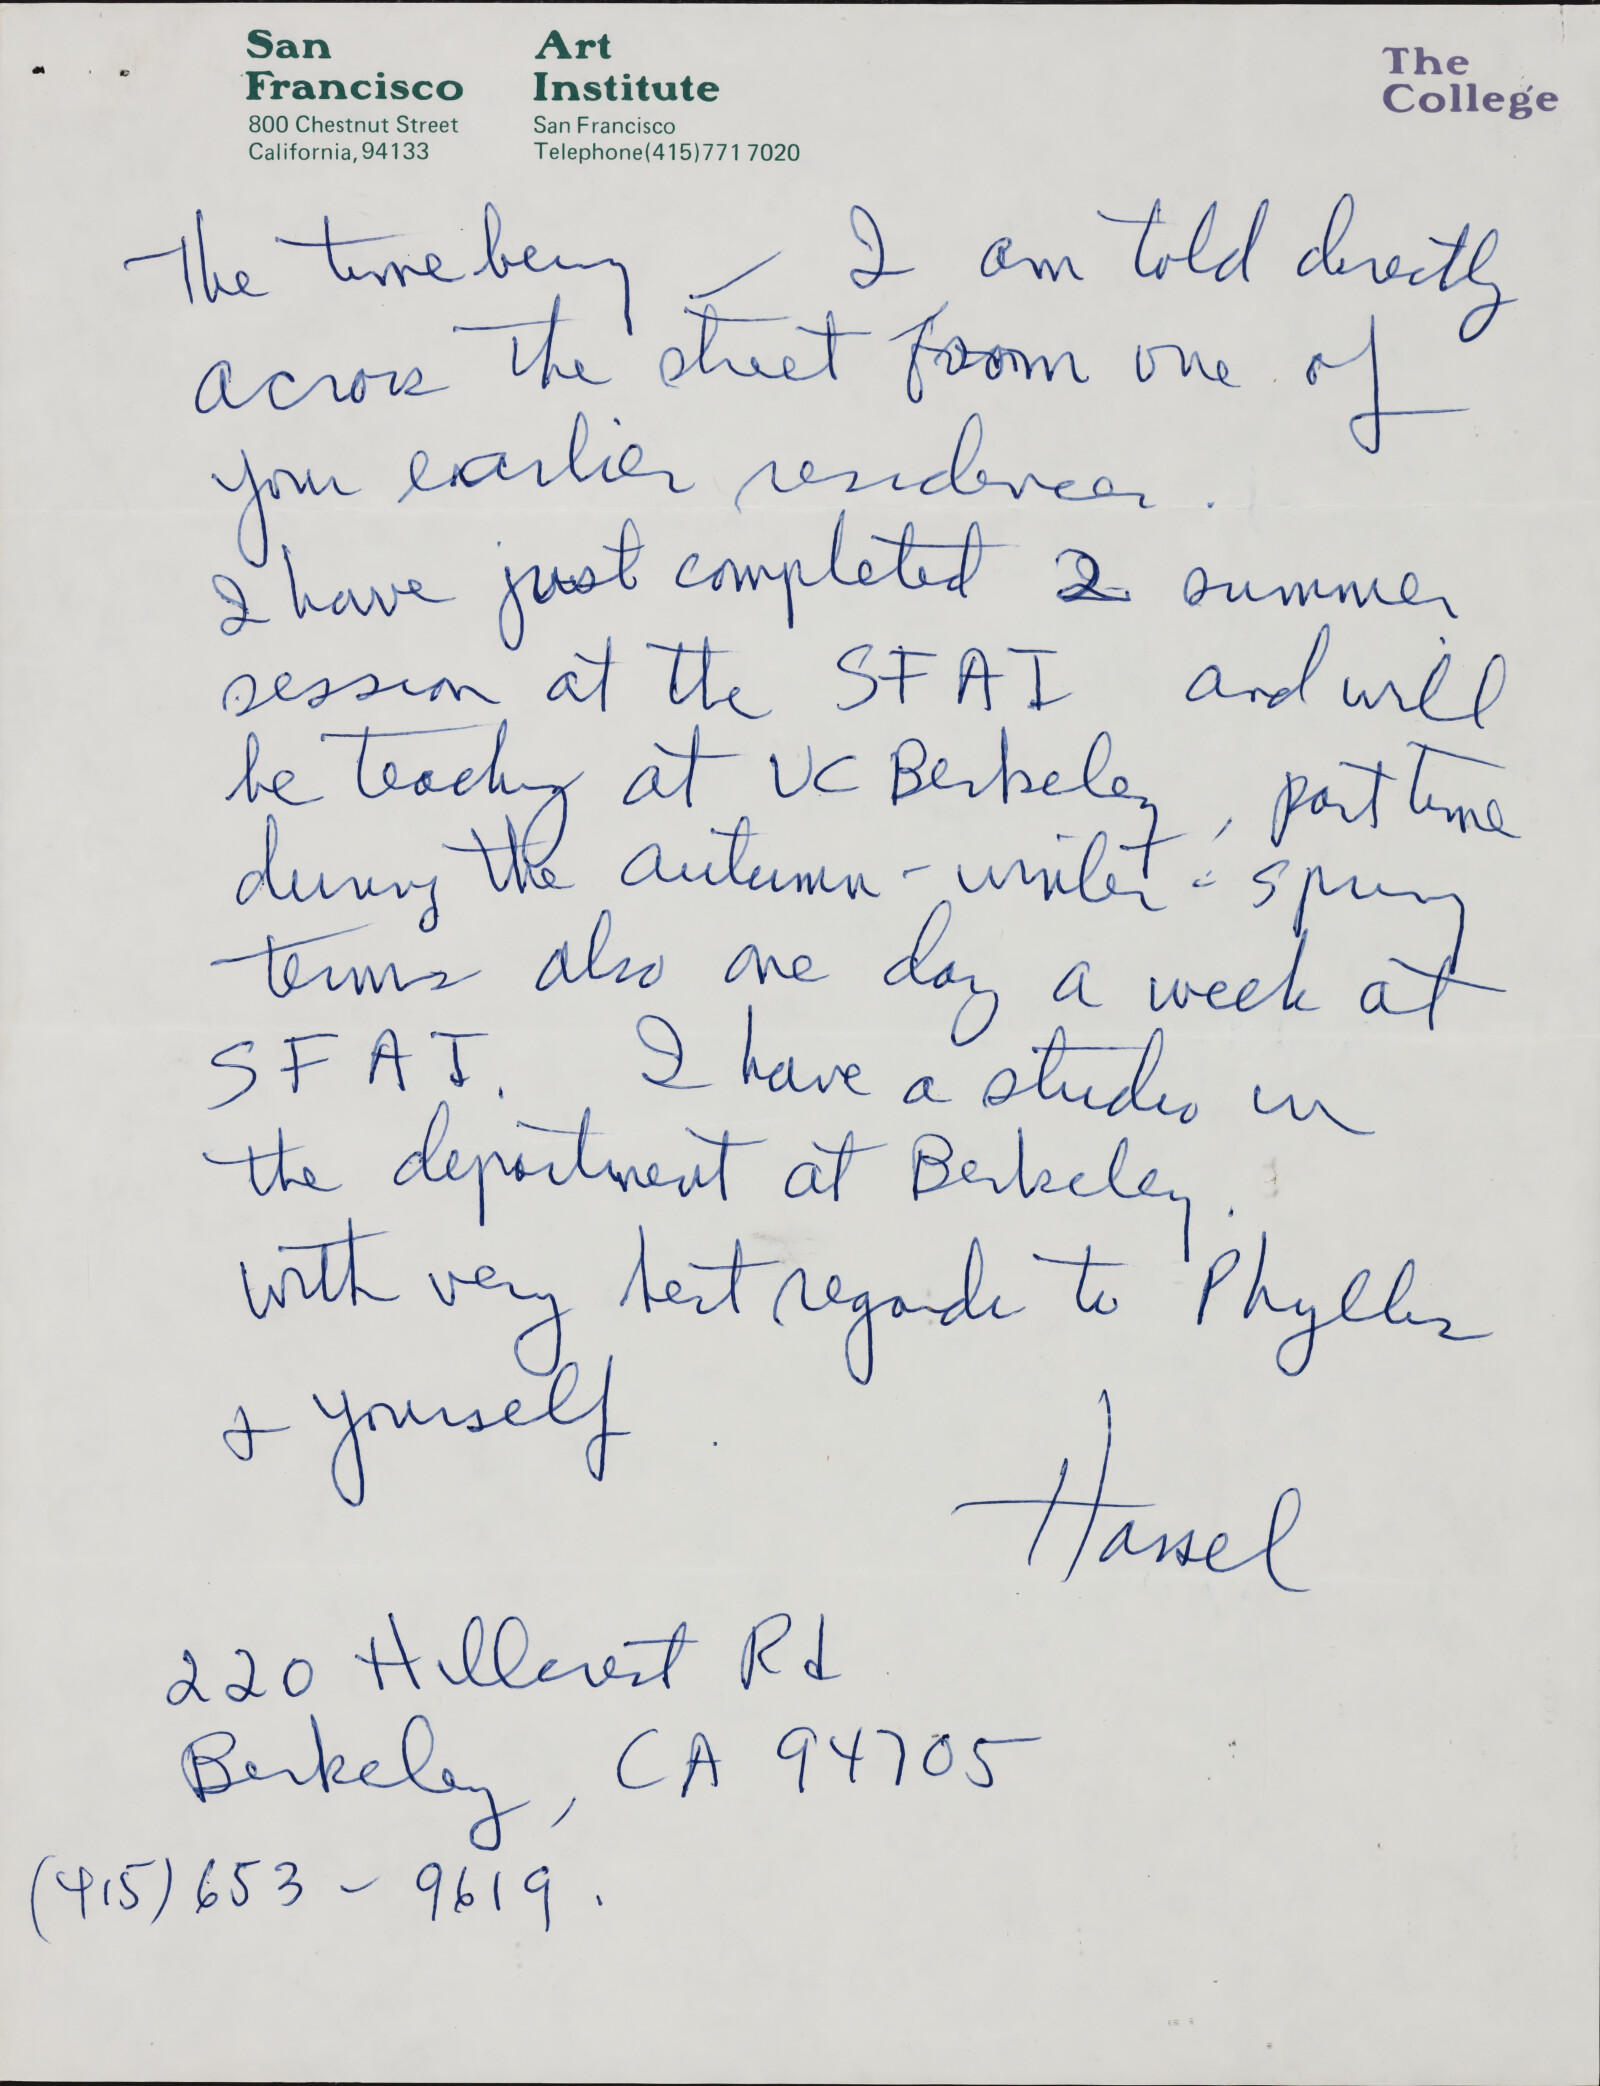 San Francisco Art Institute The College
800 Chestnut Street San Francisco
California, 94133 Telephone (415) 771 7020
The time being – I am told directly
across the street from one of
your earlier residences.
I have just completed 2 summer
session at the SFAI and will
be teaching at UC Berkeley, part time
during the autumn - winter - spring
terms also one day a week at
SFAI. I have a studio in
the department at Berkeley.
With very best regards to Phyllis
& yourself.
Hassel
220 Hillcrest Rd
Berkeley, CA 94705
(415) 653 - 9619.